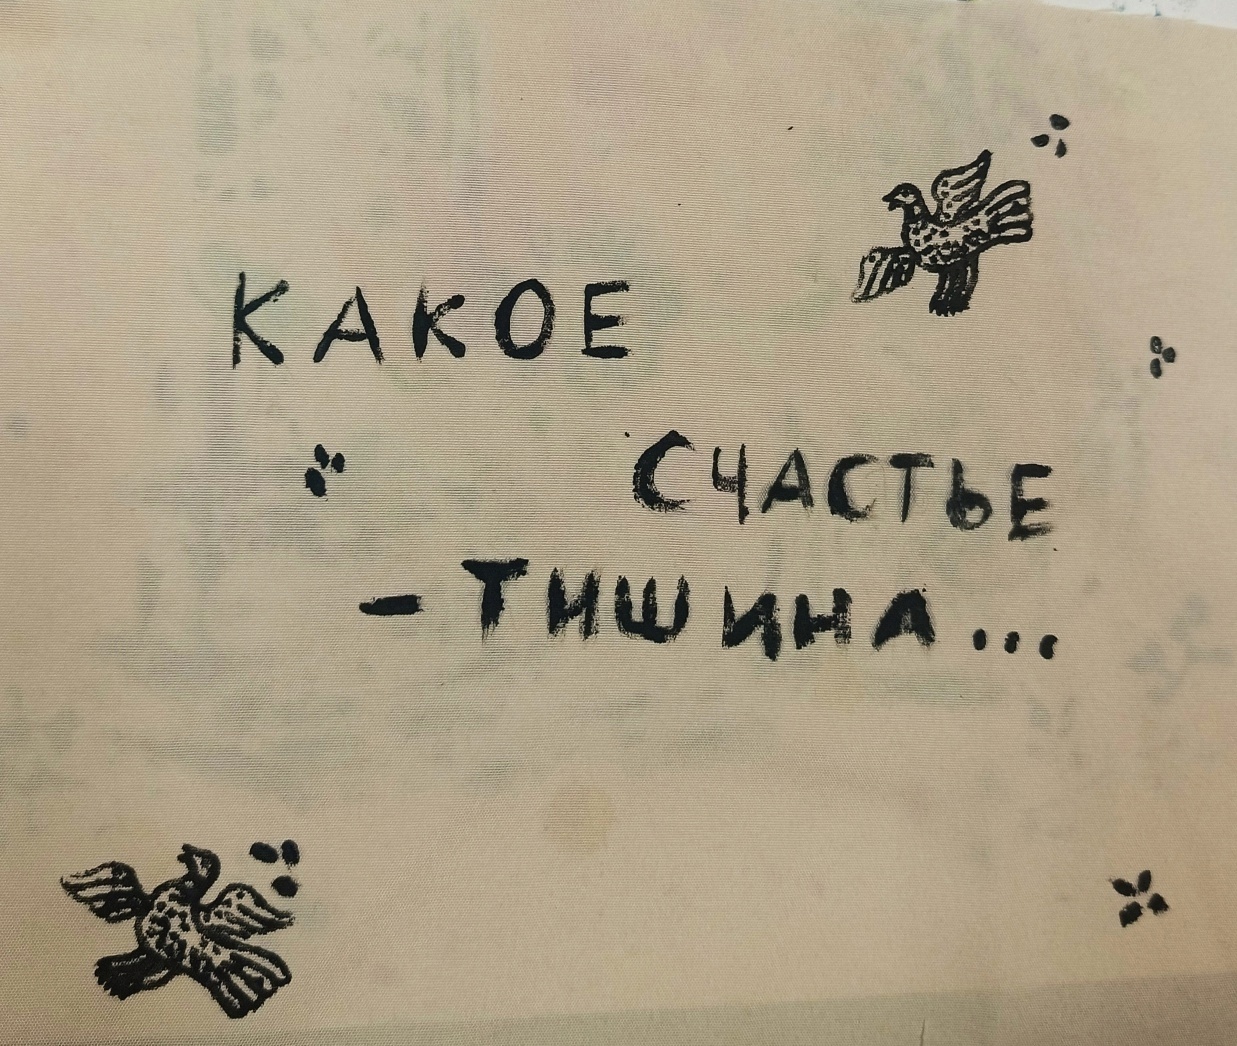 КАКОЕ
СЧАСТЬЕ
- ТИШИНА...